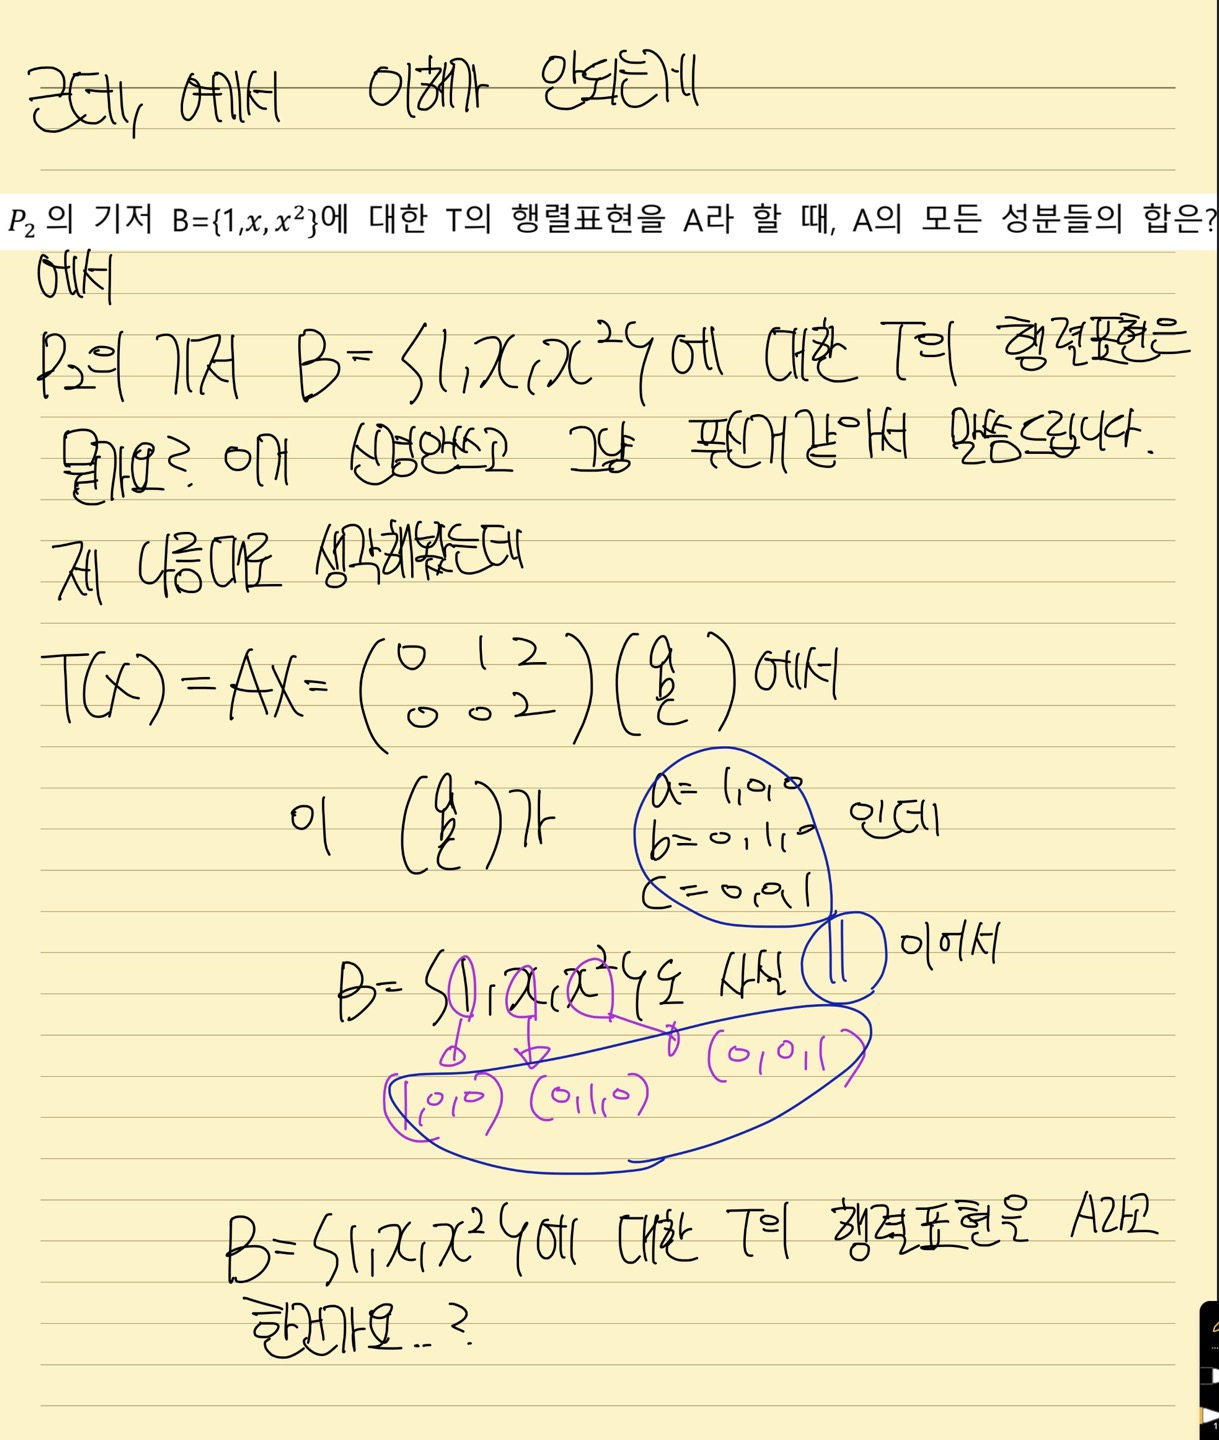 근데, 에서 이해가 안되는게
P₂의 기저 B={1,x,x²}에 대한 T의 행렬표현을 A라 할 때, A의 모든 성분들의 합은?
에서
P₂의 기저 B={1,x,x²}에 대한 T의 행렬표현은
뭘까요? 이거 신경안쓰고 그냥 푸신거같아서 말씀드립니다.
제 나름대로 생각해봤는데
T(X)=AX= (0 1 2
0 0 2) (a
b
c) 에서
이 (a
b
c)가
a=1,0,0
b=0,1,0 인데
c=0,0,1
B={1,x,x²}도 사실 || 이어서
(1,0,0) (0,1,0) (0,0,1)
B={1,x,x²}에 대한 T의 행렬표현을 A라고
한건가요..?